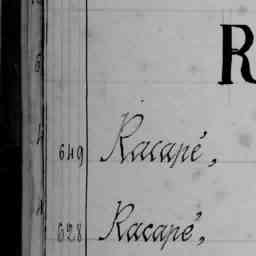 R
649 Racapé,
628 Racapé,